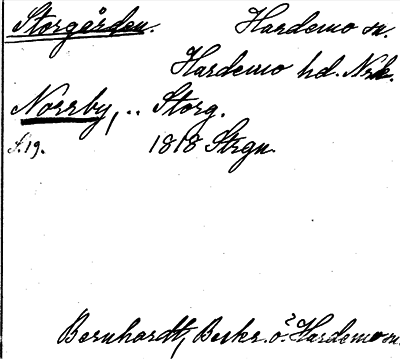 Storgården. Hardemo sn.
Hardemo hd. Nrk.
Norrby, .. Storg.
s. 19. 1818 Strgn.
Bernhardt, Beskr. ö. Hardemo sn.